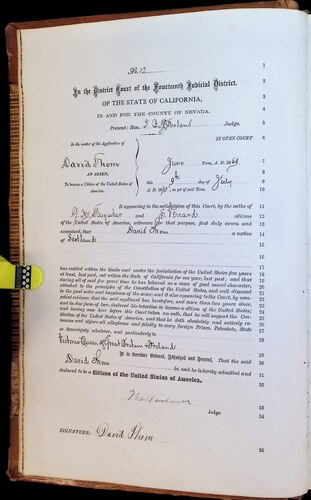 No 12
1
In the District Court of the Fourteenth Judicial District.
2
OF THE STATE OF CALIFORNIA,
3
IN AND FOR THE COUNTY OF NEVADA.
4
Present: Hon. Judge.
5
In the matter of the Application of IN OPEN COURT
6
David Thom June Term, A. D. 1869.
7
AN ALIEN, this 9th day of July
8
To become a Citizen of the United States of America. A. D. 1869, as yet of said Term.
9
10
It appearing to the satisfaction of this Court, by the oaths of
11
and citizens
12
of the United States of America, witnesses for that purpose, first duly sworn and
13
examined, that David Thom a native
14
of Scotland
15
16
has resided within the limits and under the jurisdiction of the United States five years
17
at least, last past, and within the State of California for one year, last past; and that
18
during all of said five years' time he has behaved as a man of good moral character,
19
attached to the principles of the Constitution of the United States, and well disposed
20
to the good order and happiness of the same; and it also appearing to the Court, by com-
21
petent evidence, that the said applicant has heretofore, and more than two years since,
22
and in due form of law, declared his intention to become a citizen of the United States;
23
and having now here before this Court taken an oath, that he will support the Con-
24
stitution of the United States of America, and that he doth absolutely and entirely re-
25
nounce and abjure all allegiance and fidelity to every foreign Prince, Potentate, State
26
or Sovereignty whatever, and particularly to
27
Victoria Queen of Great Britain & Ireland
28
It is therefore Ordered, Adjudged and Decreed, That the said
29
David Thom be, and he is hereby admitted and
30
declared to be a Citizen of the United States of America.
31
32
33
Judge.
34
SIGNATURE: David Thom
35